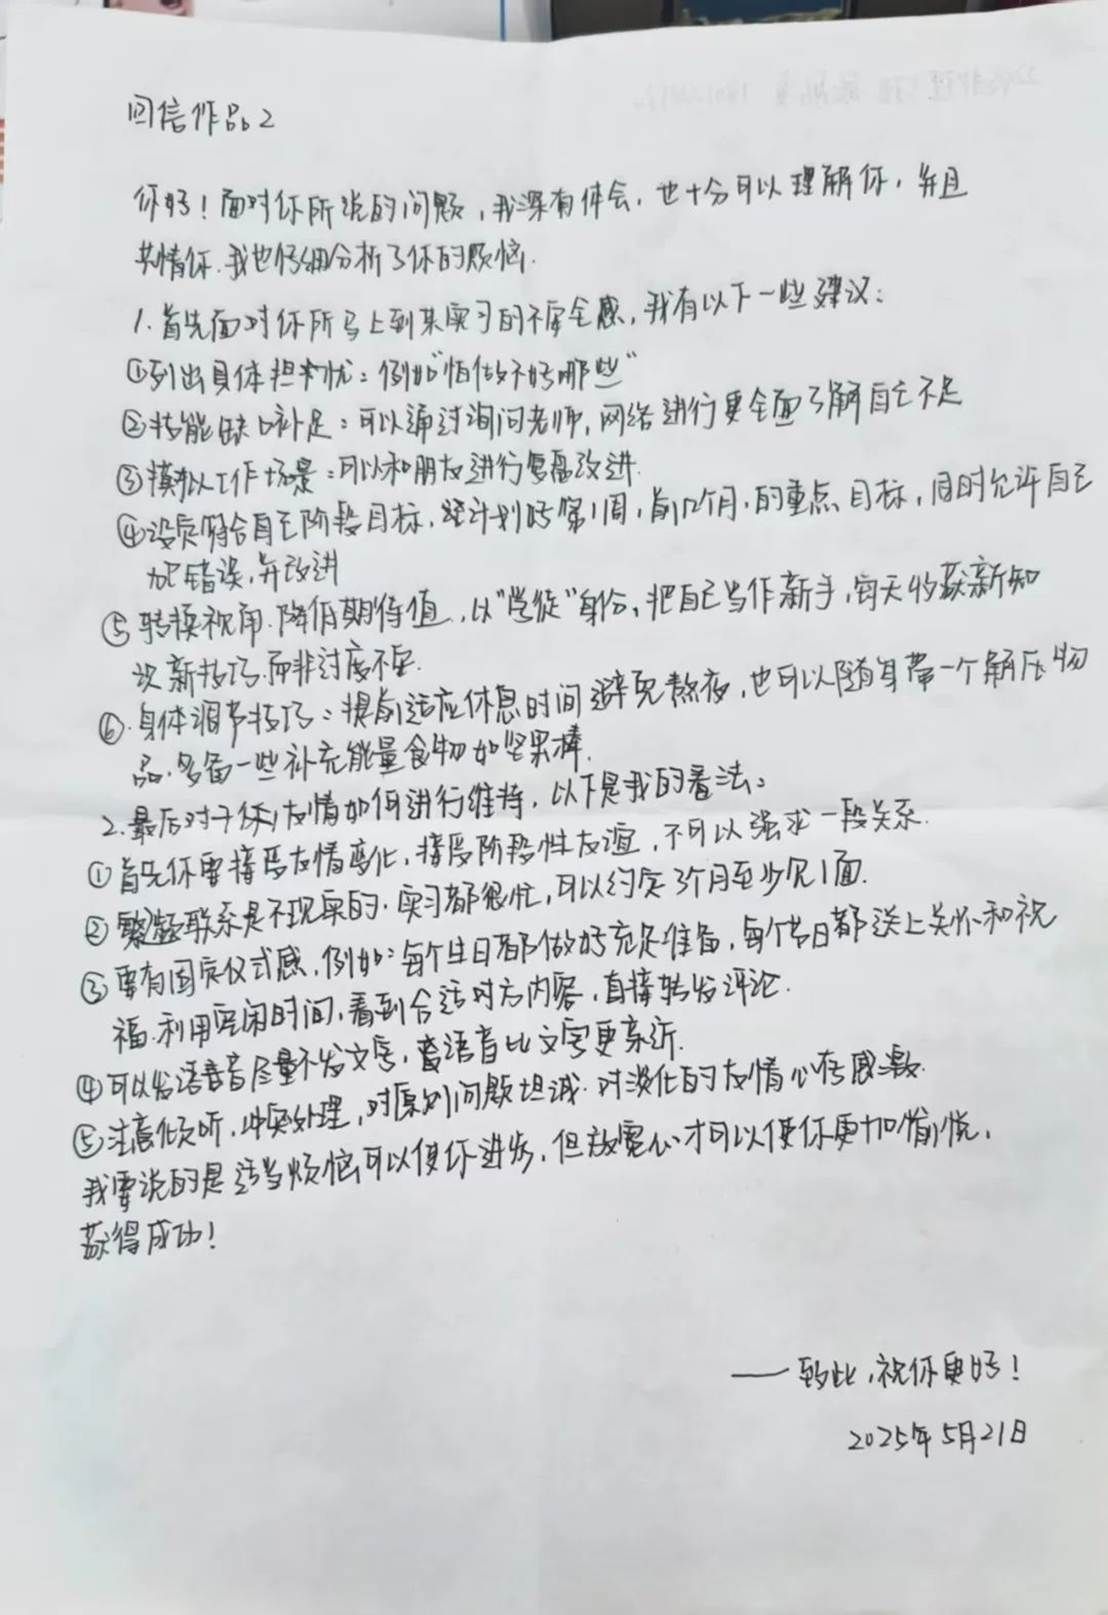 回信作品2
你好！面对你所说的问题，我深有体会，也十分可以理解你，并且
共情你.我也仔细分析了你的烦恼.
1.首先面对你所马上到来实习的不安全感，我有以下一些建议：
①列出具体担忧：例如"怕做不好哪些"
②技能缺口补足：可以通过询问老师，网络进行更全面了解自己不足
③模拟工作场景：可以和朋友进行复盘改进.
④设定符合自己阶段目标，计划好第1周，前几个月.的重点目标，同时允许自己
犯错误,并改进
⑤转换视角.降低期待值，以"学徒"身份，把自己当作新手，每天收获新知
识新技巧.而非过度不安.
⑥.身体调节技巧：提前适应休息时间避免熬夜，也可以随身带一个解压物
品.多备一些补充能量食物如坚果棒.
2.最后对于你友情如何进行维持，以下是我的看法：
①首先你要接受友情变化，接受阶段性友谊，不可以强求一段关系.
②繁联系是不现实的.实习都很忙，可以约定3个月至少见1面.
③要有固定仪式感，例如：每个生日都做好充足准备，每个节日都送上关怀和祝
福.利用空闲时间，看到合适对方内容，直接转发评论.
④可以发语音尽量不发文字，语音比文字更亲近.
⑤注意倾听，冲突处理，对原则问题坦诚.对淡化的友情心存感激.
我要说的是适当烦恼可以使你进步，但放宽心才可以使你更加愉悦，
获得成功！
——到此，祝你更好！
2025年5月21日